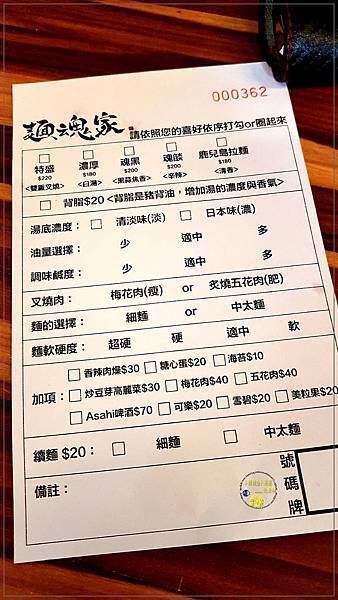 000362
麵魂家 請依照您的喜好依序打勾or圈起來
□ 特盛 $220 <雙重叉燒>
□ 濃厚 $180 <白湯>
□ 魂黑 $200 <黑蒜焦香>
□ 魂燄 $200 <辛辣>
□ 鹿兒島拉麵 $180 <清香>
□ 背脂$20 <背脂是豬背油,增加湯的濃度與香氣>
湯底濃度: □ 清淡味(淡) □ 日本味(濃)
油量選擇: 少 適中 多
調味鹹度: 少 適中 多
叉燒肉: 梅花肉(瘦) or 炙燒五花肉(肥)
麵的選擇: 細麵 or 中太麵
麵軟硬度: 超硬 硬 適中 軟
□ 香辣肉燥$30 □ 糖心蛋$20 □ 海苔$10
加項: □ 炒豆芽高麗菜$30 □ 梅花肉$40 □ 五花肉$40
□ Asahi啤酒$70 □ 可樂$20 □ 雪碧$20 □ 美粒果$20
續麵 $20: □ 細麵 □ 中太麵
備註:
號碼牌